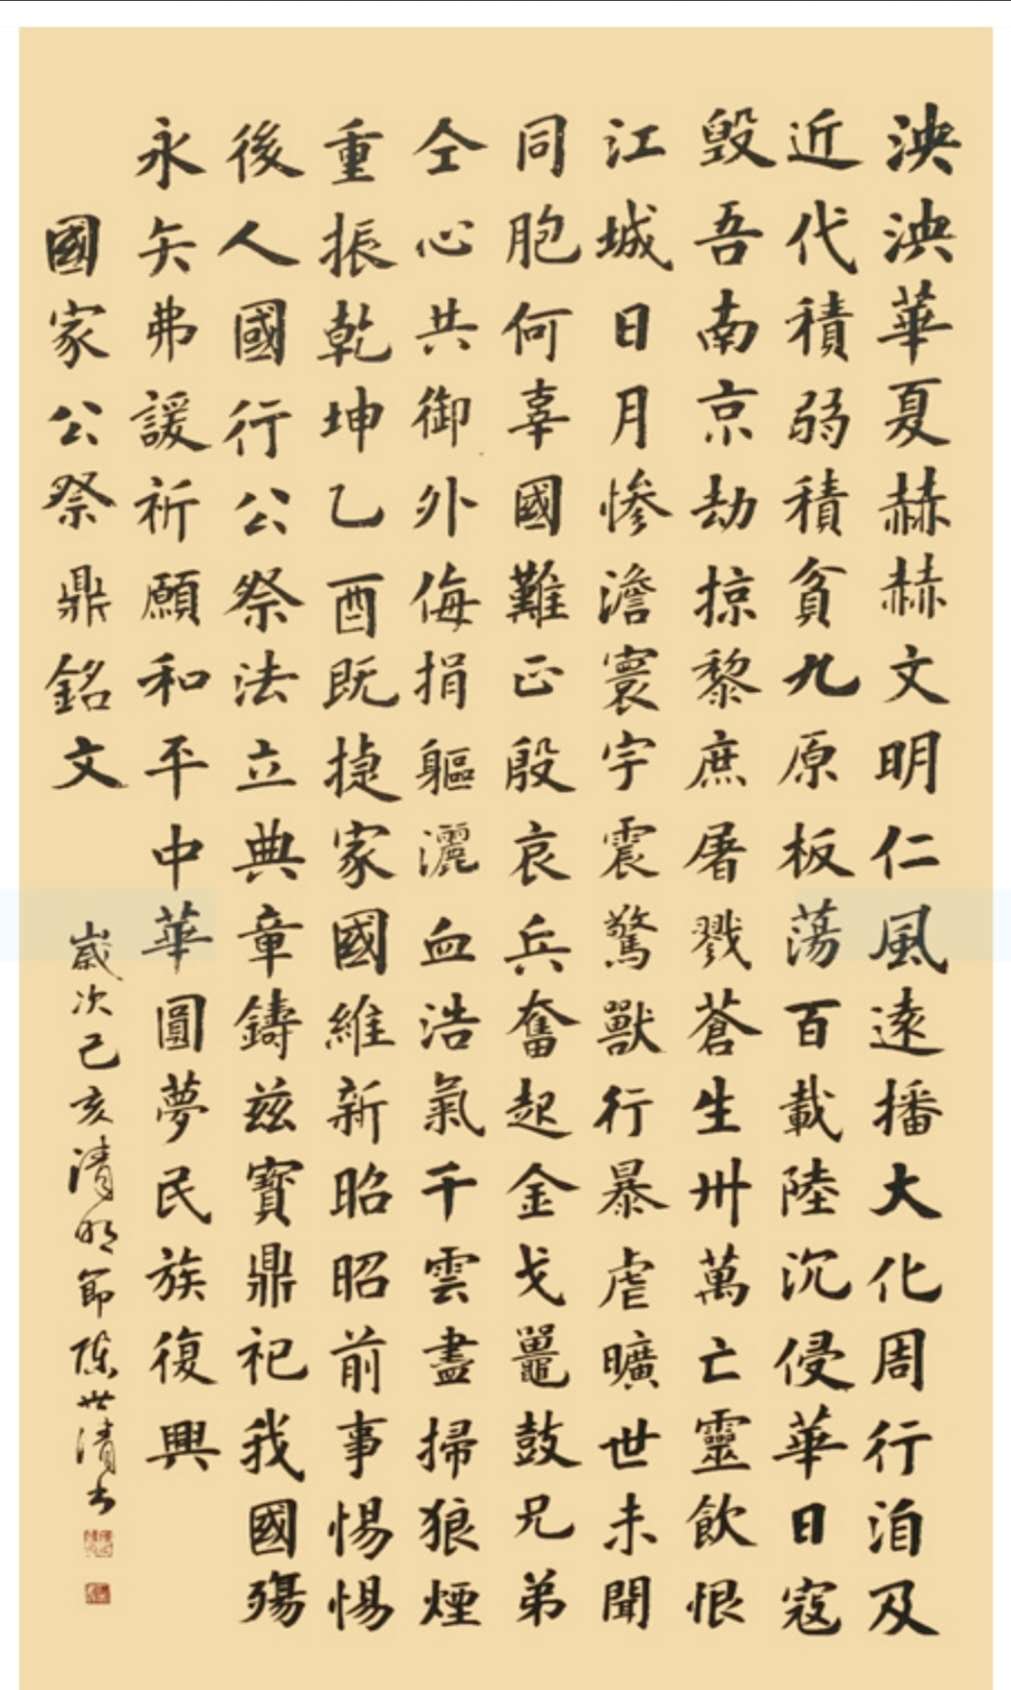 泱泱華夏赫赫文明仁風遠播大化周行洎及
近代積弱積貧九原板蕩百載陸沉侵華日寇
毀吾南京劫掠黎庶屠戮蒼生卅萬亡靈飲恨
江城日月慘澹寰宇震驚獸行暴虐曠世未聞
同胞何辜國難正殷哀兵奮起金戈鼉鼓兄弟
仝心共御外侮捐軀灑血浩氣千雲盡掃狼煙
重振乾坤乙酉既捷家國維新昭昭前事惕惕
後人國行公祭法立典章鑄兹寶鼎祀我國殤
永矢弗諼祈願和平中華圓夢民族復興
國家公祭鼎銘文
歲次己亥清明節陳世清書